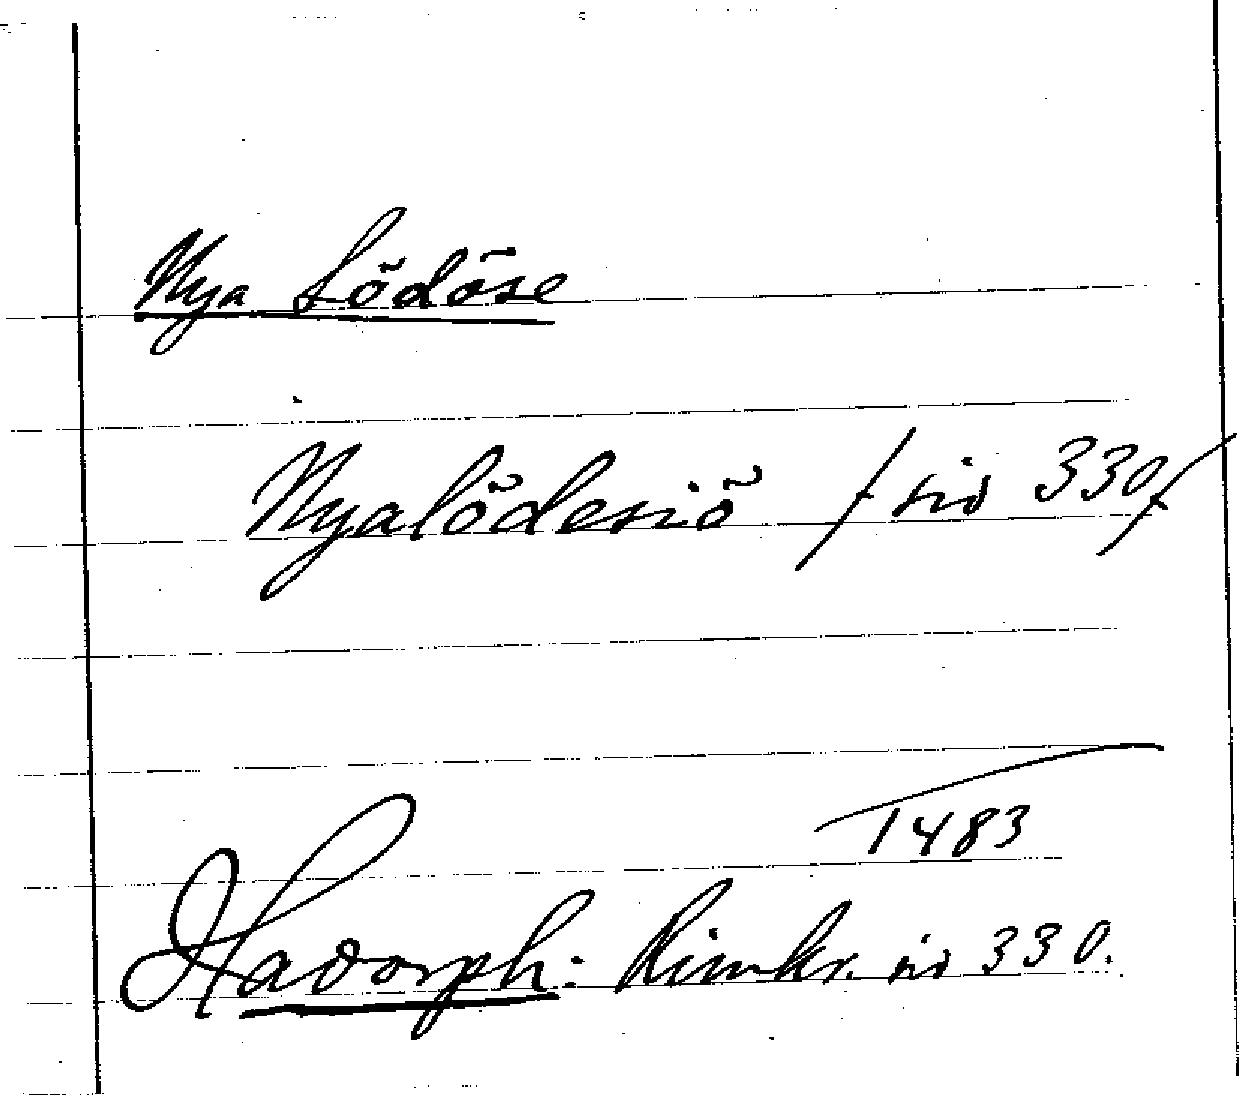 Nya Lödöse
Nyalödesiö / sid 330/
1483
Hadorph: Rimkr. sid 330.